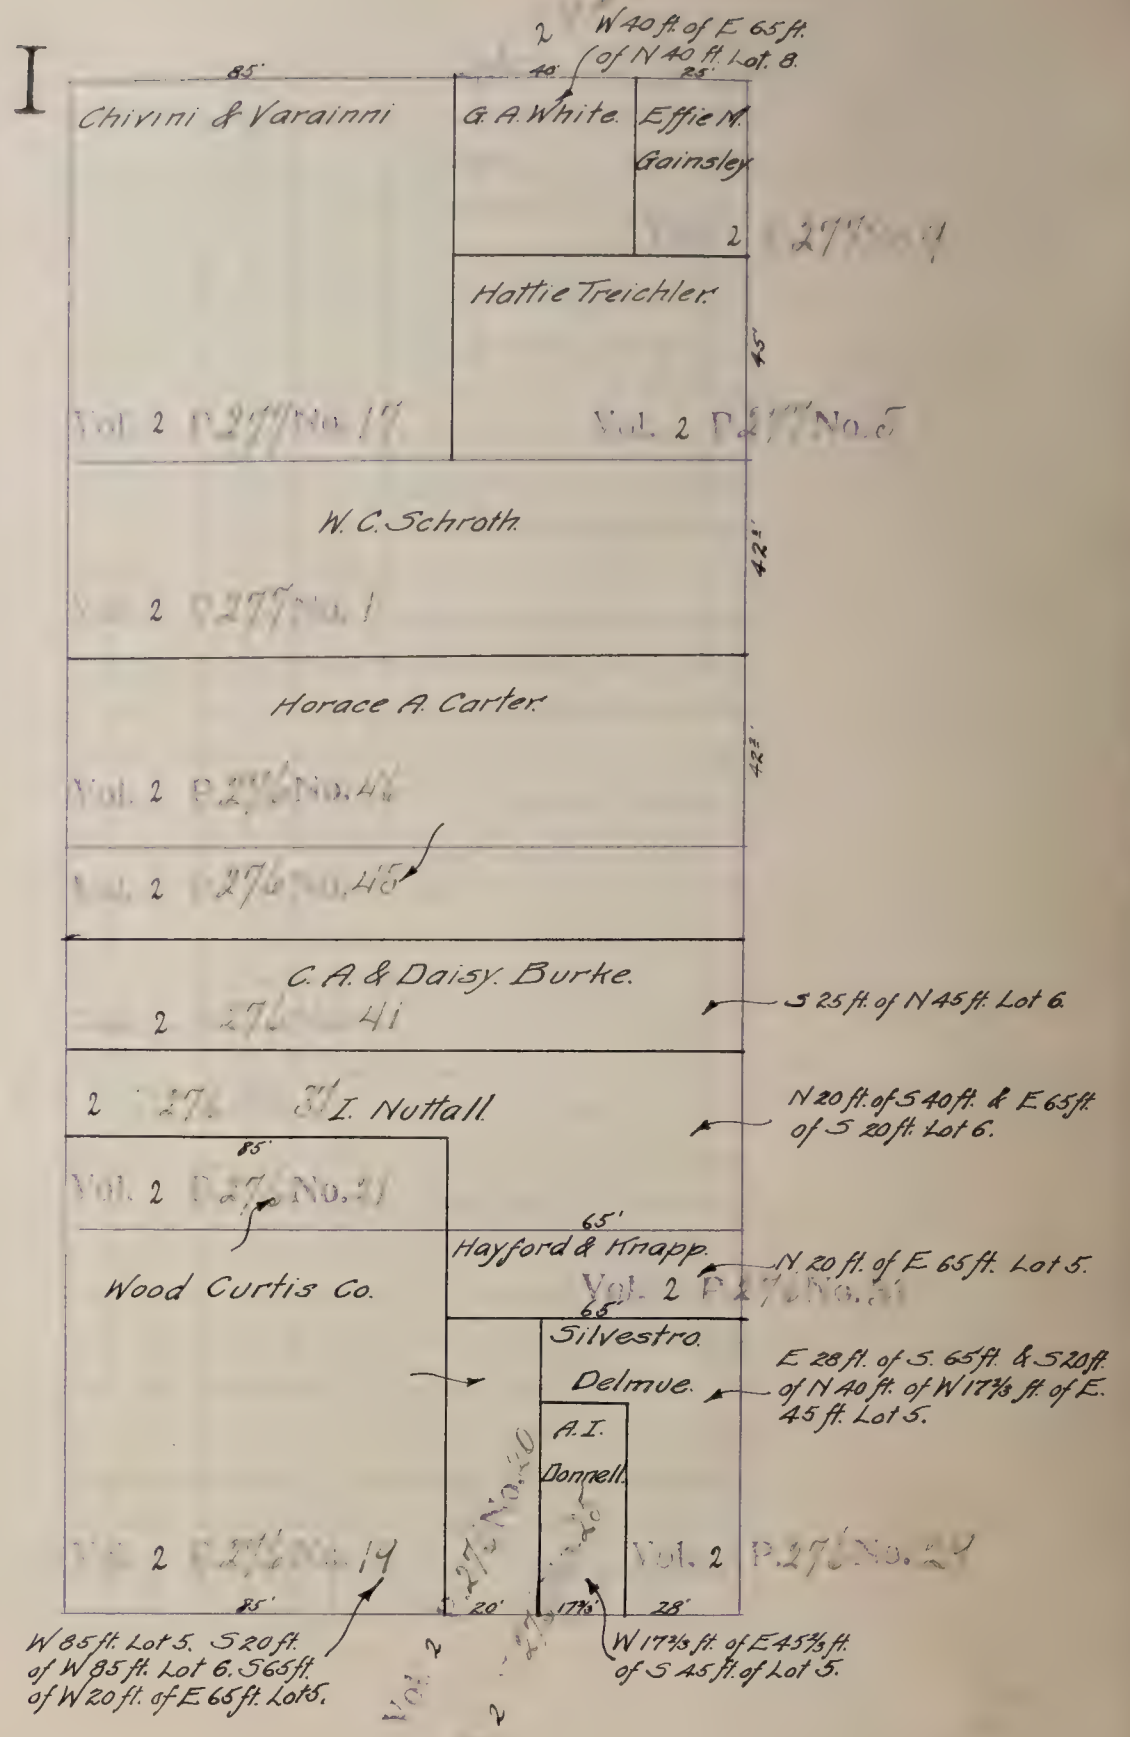 I
2 W 40 ft. of E 65 ft.
of N 40 ft. Lot. 8.
85' 40' 25'
Chivini & Varainni
G. A. White.
Effie M.
Gainsley
2 277 No. 4
Hattie Treichler.
45'
Vol. 2 P. 277 No. 17
Vol. 2 P. 277 No. 5
W. C. Schroth.
42½'
2 P. 277 No. 1
Horace A. Carter.
Vol. 2 P. 276 No. 46
Vol. 2 P. 276 No. 45
C. A. & Daisy. Burke.
2 276 41
S 25 ft. of N 45 ft. Lot 6.
2 276
I. Nuttall.
N 20 ft. of S 40 ft. & E 65 ft.
of S 20 ft. Lot 6.
85'
Vol. 2 P. 276 No.
65'
Hayford & Knapp.
N. 20 ft. of E 65 ft. Lot 5.
Vol. 2 P. 276 No.
Wood Curtis Co.
65'
Silvestro.
Delmue.
E 28 ft. of S. 65 ft. & S 20 ft.
of N 40 ft. of W 17⅔ ft. of E.
45 ft. Lot 5.
A. I.
Donnell.
Vol. 2 P. 276 No. 20
2 276
2 P. 276 No. 19
Vol. 2 P. 276 No.
85' 20' 17⅔' 28'
W 85 ft. Lot 5. S 20 ft.
of W 85 ft. Lot 6. S 65 ft.
of W 20 ft. of E 65 ft. Lot 5.
W 17⅔ ft. of E 45⅔ ft.
of S 45 ft. of Lot 5.